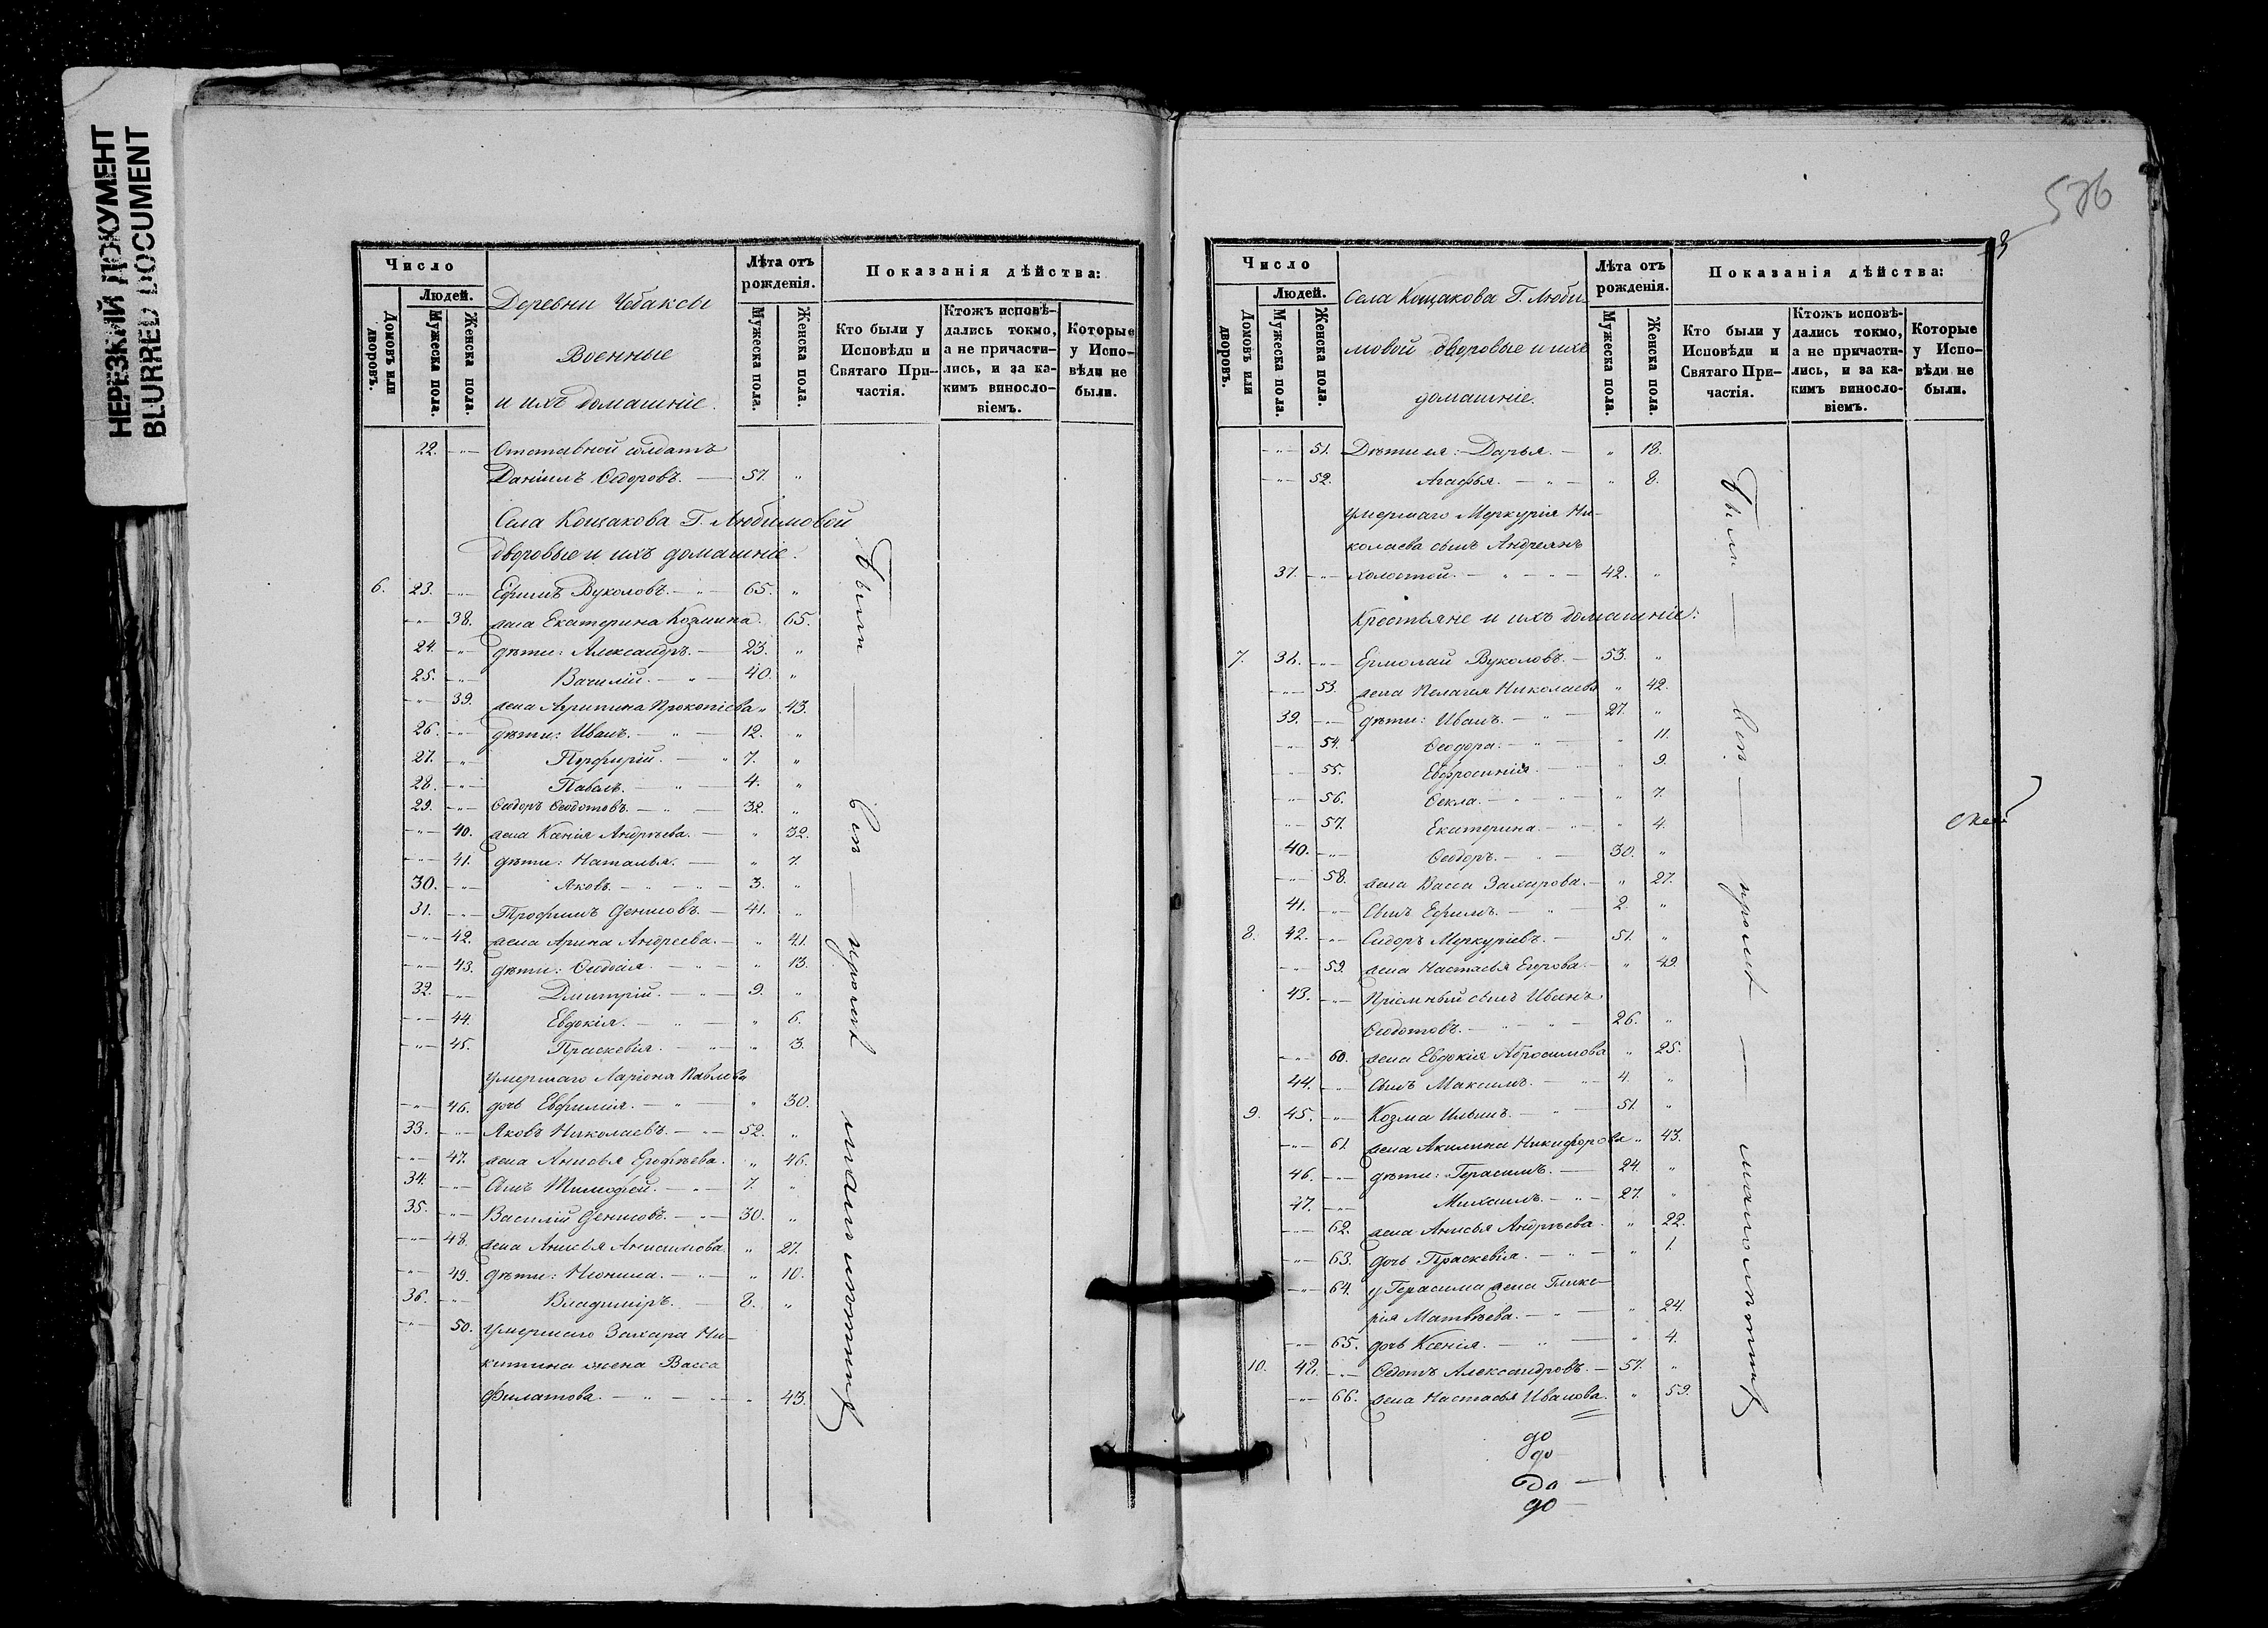 НЕРЕЗКИЙ ДОКУМЕНТ
BLURRED DOCUMENT
Число
Людей.
Домовъ или дворовъ.
Мужеска пола.
Женска пола.
Деревни Чебаксы
Военные
и ихъ домашніе.
Лѣта отъ рожденія.
Мужеска пола.
Женска пола.
Показанія дѣйства:
Кто были у Исповѣди и Святаго Причастія.
Ктожъ исповѣдались токмо, а не причастились, и за какимъ винословіемъ.
Которые у Исповѣди не были.
22. -"- Отставной солдатъ
Даніилъ Ѳедоровъ. — 57. "
Села Кощакова Г. Любимовой
дворовые и ихъ домашніе.
6. 23. -"- Ефимъ Вуколовъ. - " - 65. "
-"- 38. жена Екатерина Козмина. 65.
24. -"- дѣти: Александръ. — 23. "
25. -"- Василій. - " - 40. "
-"- 39. жена Агрипина Прокопіева " 43.
26. -"- дѣти: Иванъ. - " - 12. "
27. -"- Порфирій. — " 7. "
28. -"- Павелъ. - " - 4. "
29. -"- Сидоръ Ѳедотовъ. - " - 32. "
-"- 40. жена Ксенія Андрѣева. — " 32.
-"- 41. дѣти: Наталья. — " 7.
30. -"- Яковъ. - " - " - 3. "
31. -"- Трофимъ Денисовъ. — 41. "
-"- 42. жена Арина Андреева. — " 41.
-"- 43. дѣти: Ѳедосія. - " - " 13.
32. -"- Дмитрій. - " - 9. "
-"- 44. Евдокія. - " - " 6.
-"- 45. Праскевія. - " - " 3.
умершаго Ларіона Павлова
-"- 46. дочь Евфимія. - " - " 30.
33. -"- Яковъ Николаевъ. - " - 52. "
-"- 47. жена Анисья Ерофѣева. " 46.
34. -"- Сынъ Тимофей. - " - 7. "
35. -"- Василій Денисовъ. - " - 30. "
-"- 48. жена Анисья Анисимова. " 27.
-"- 49. дѣти: Неонила. - " - " 10.
36. -"- Владиміръ. — 8. "
-"- 50. умершаго Захара Ни-
китина жена Васса
Филатова. - " - " - " 43.
Были — вси — кромѣ малолѣтнихъ
576
Число
Людей.
Домовъ или дворовъ.
Мужеска пола.
Женска пола.
Села Кощакова Г. Люби-
мовой дворовые и ихъ
домашніе.
Лѣта отъ рожденія.
Мужеска пола.
Женска пола.
Показанія дѣйства:
Кто были у Исповѣди и Святаго Причастія.
Ктожъ исповѣдались токмо, а не причастились, и за какимъ винословіемъ.
Которые у Исповѣди не были.
-"- 51. Дѣти ея: Дарья. — " 18.
-"- 52. Агафья. - " - " 8.
умершаго Меркурія Ни-
колаева сынъ Андреянъ
37. -"- холостой. - " - " - 42. "
Крестьяне и ихъ домашніе:
7. 38. -"- Ермолай Вуколовъ. — 53. "
-"- 53. жена Пелагея Николаева " 42.
39. -"- дѣти: Иванъ. - " - 27. "
-"- 54. Ѳеодора. - " - " 11.
-"- 55. Евфросинія. — " 9.
-"- 56. Ѳекла. - " - " 7.
-"- 57. Екатерина. - " - " 4.
40. -"- Ѳедоръ. - " - 30. "
-"- 58. жена Васса Захарова. — " 27.
41. -"- Сынъ Ефимъ. - " - 2. "
8. 42. -"- Сидоръ Меркуріевъ. — 51. "
-"- 59. жена Настасья Егорова. — " 49.
43. -"- Пріемный сынъ Иванъ
Ѳедотовъ. - " - " - 26. "
-"- 60. жена Евдокія Абросимова " 25.
44. -"- Сынъ Максимъ. - " - 4. "
9. 45. -"- Козма Ильинъ. - " - 51. "
-"- 61. жена Акилина Никифорова " 43.
46. -"- дѣти: Герасимъ. — 24. "
47. -"- Михаилъ. - " - 27. "
-"- 62. жена Анисья Андрѣева. " 22.
-"- 63. дочь Праскевія. - " - " 1.
-"- 64. у Герасима жена Глике-
рія Матвѣева. - " - " 24.
-"- 65. дочь Ксенія. - " - " 4.
10. 48. -"- Ѳедотъ Александровъ. — 57. "
-"- 66. жена Настасья Иванова. " 59.
Были — вси — кромѣ — малолѣтнихъ
до
до
до
до